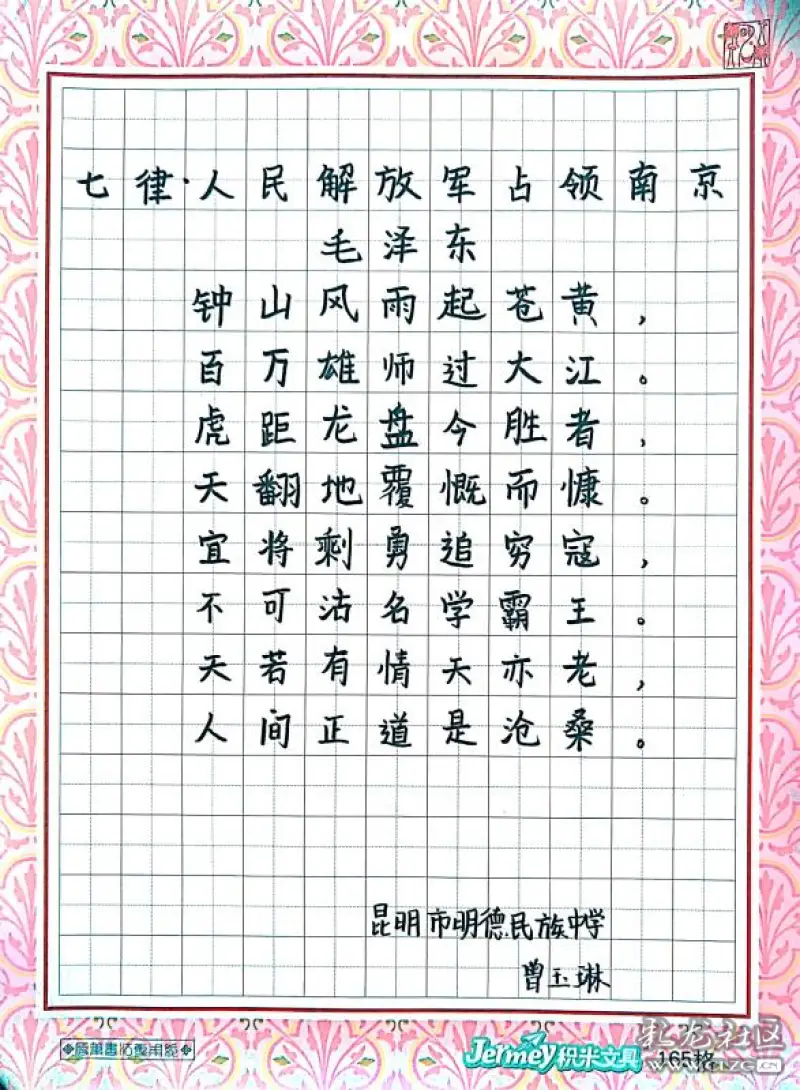 七律·人民解放军占领南京
毛泽东
钟山风雨起苍黄，
百万雄师过大江。
虎距龙盘今胜者，
天翻地覆慨而慷。
宜将剩勇追穷寇，
不可沽名学霸王。
天若有情天亦老，
人间正道是沧桑。
昆明市明德民族中学
曾玉琳
Jermey积米文具
165格